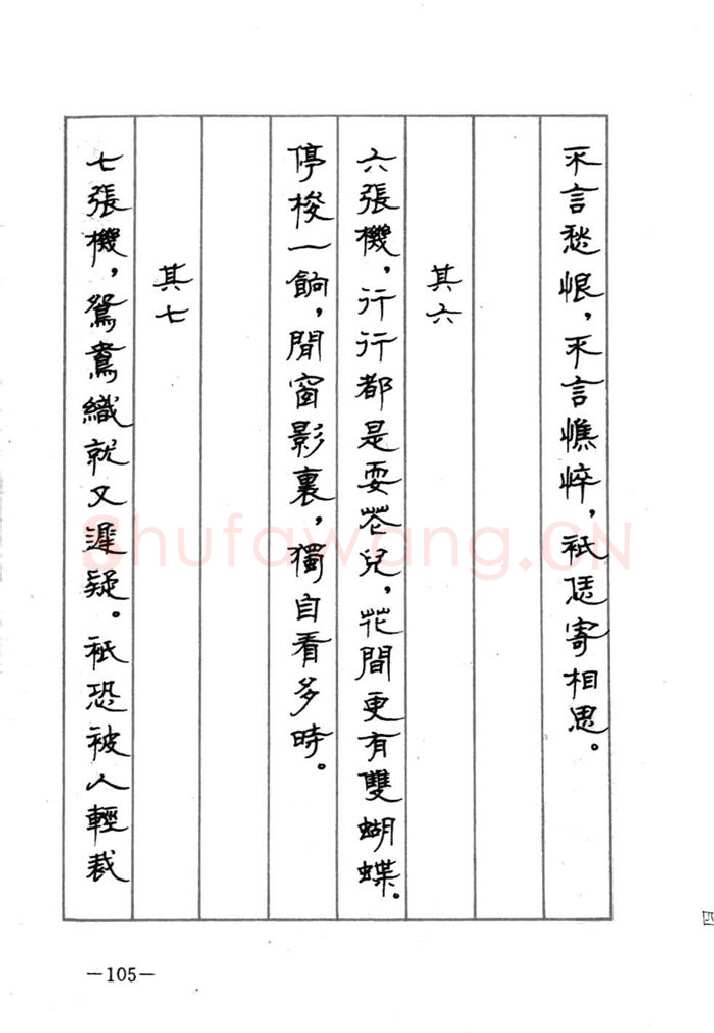 不言愁恨，不言憔悴，衹恁寄相思。
其六
六張機，行行都是耍花兒，花間更有雙蝴蝶。
停梭一餉，閒窗影裏，獨自看多時。
其七
七張機，鴛鴦織就又遲疑。衹恐被人輕裁
Shufawang.CN
—105—
四